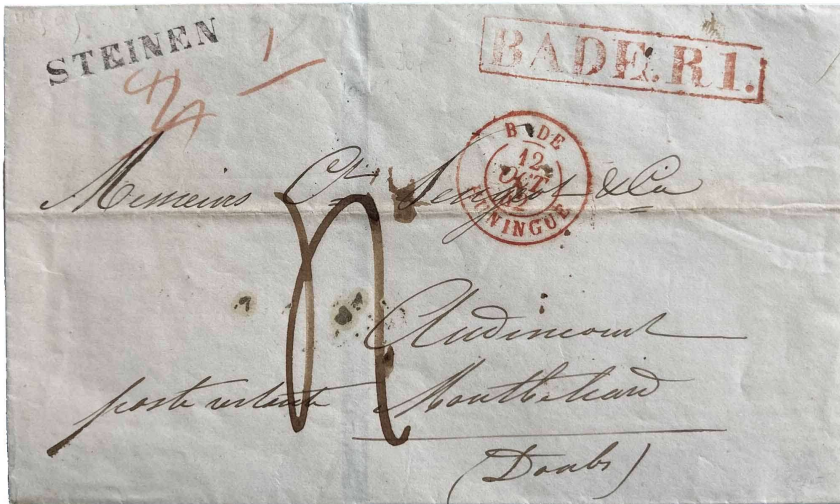 STEINEN
1
BADE.R1.
BADE
12
OCT
HUNINGUE
Messieurs & Co
Audincourt
poste restante Montbeliard
(Doubs)